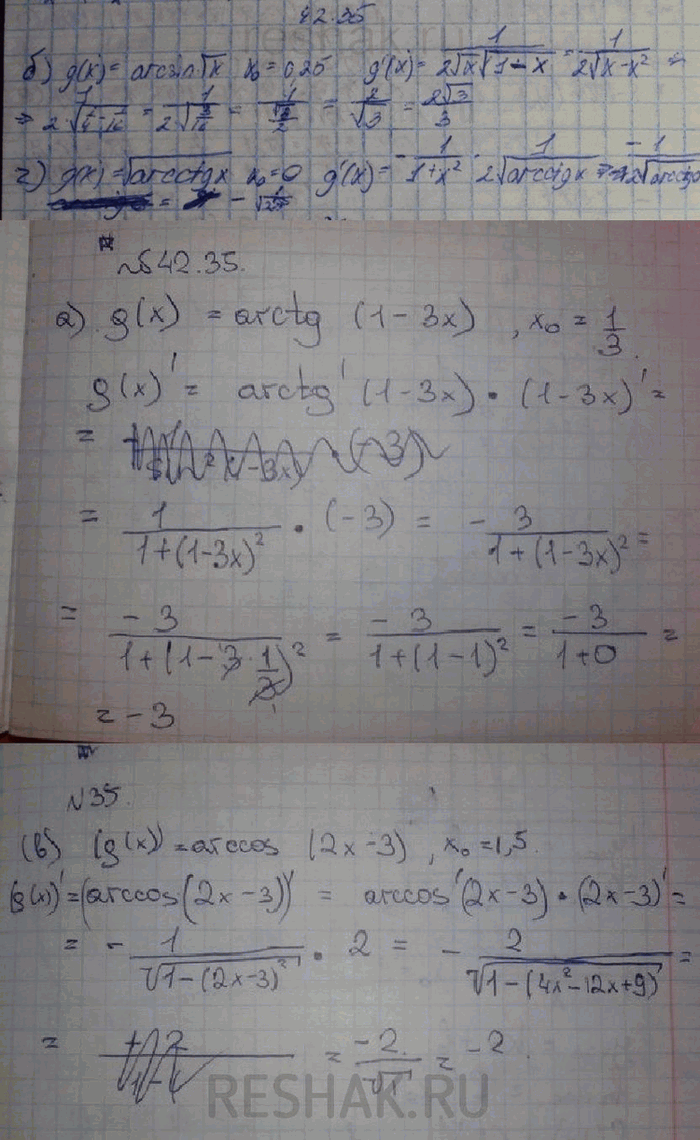 42.35
reshak.ru
б) g(x) = arcsin√x x₀ = 0,25 g'(x) = 1/(2√x√(1-x)) = 1/(2√(x-x²)) =
= 1/(2√(1/4-1/16)) = 1/(2√(3/16)) = 1/(√3/2) = 2/√3 = 2√3/3
г) g(x) = √(arcctgx) x₀ = 0 g'(x) = -1/(1+x²) · 1/(2√(arcctgx))
№42.35.
а) g(x) = arctg (1-3x) , x₀ = 1/3.
g(x)' = arctg' (1-3x) · (1-3x)' =
=
= 1/(1+(1-3x)²) · (-3) = - 3/(1+(1-3x)²) =
= -3/(1+(1-3·1/3)²) = -3/(1+(1-1)²) = -3/(1+0) =
= -3
№35.
(в) (g(x)) = arccos (2x-3) , x₀ = 1,5.
(g(x))' = (arccos(2x-3))' = arccos'(2x-3) · (2x-3)' =
= - 1/√(1-(2x-3)²) · 2 = - 2/√(1-(4x²-12x+9)) =
= = -2/√1 = -2.
RESHAK.RU